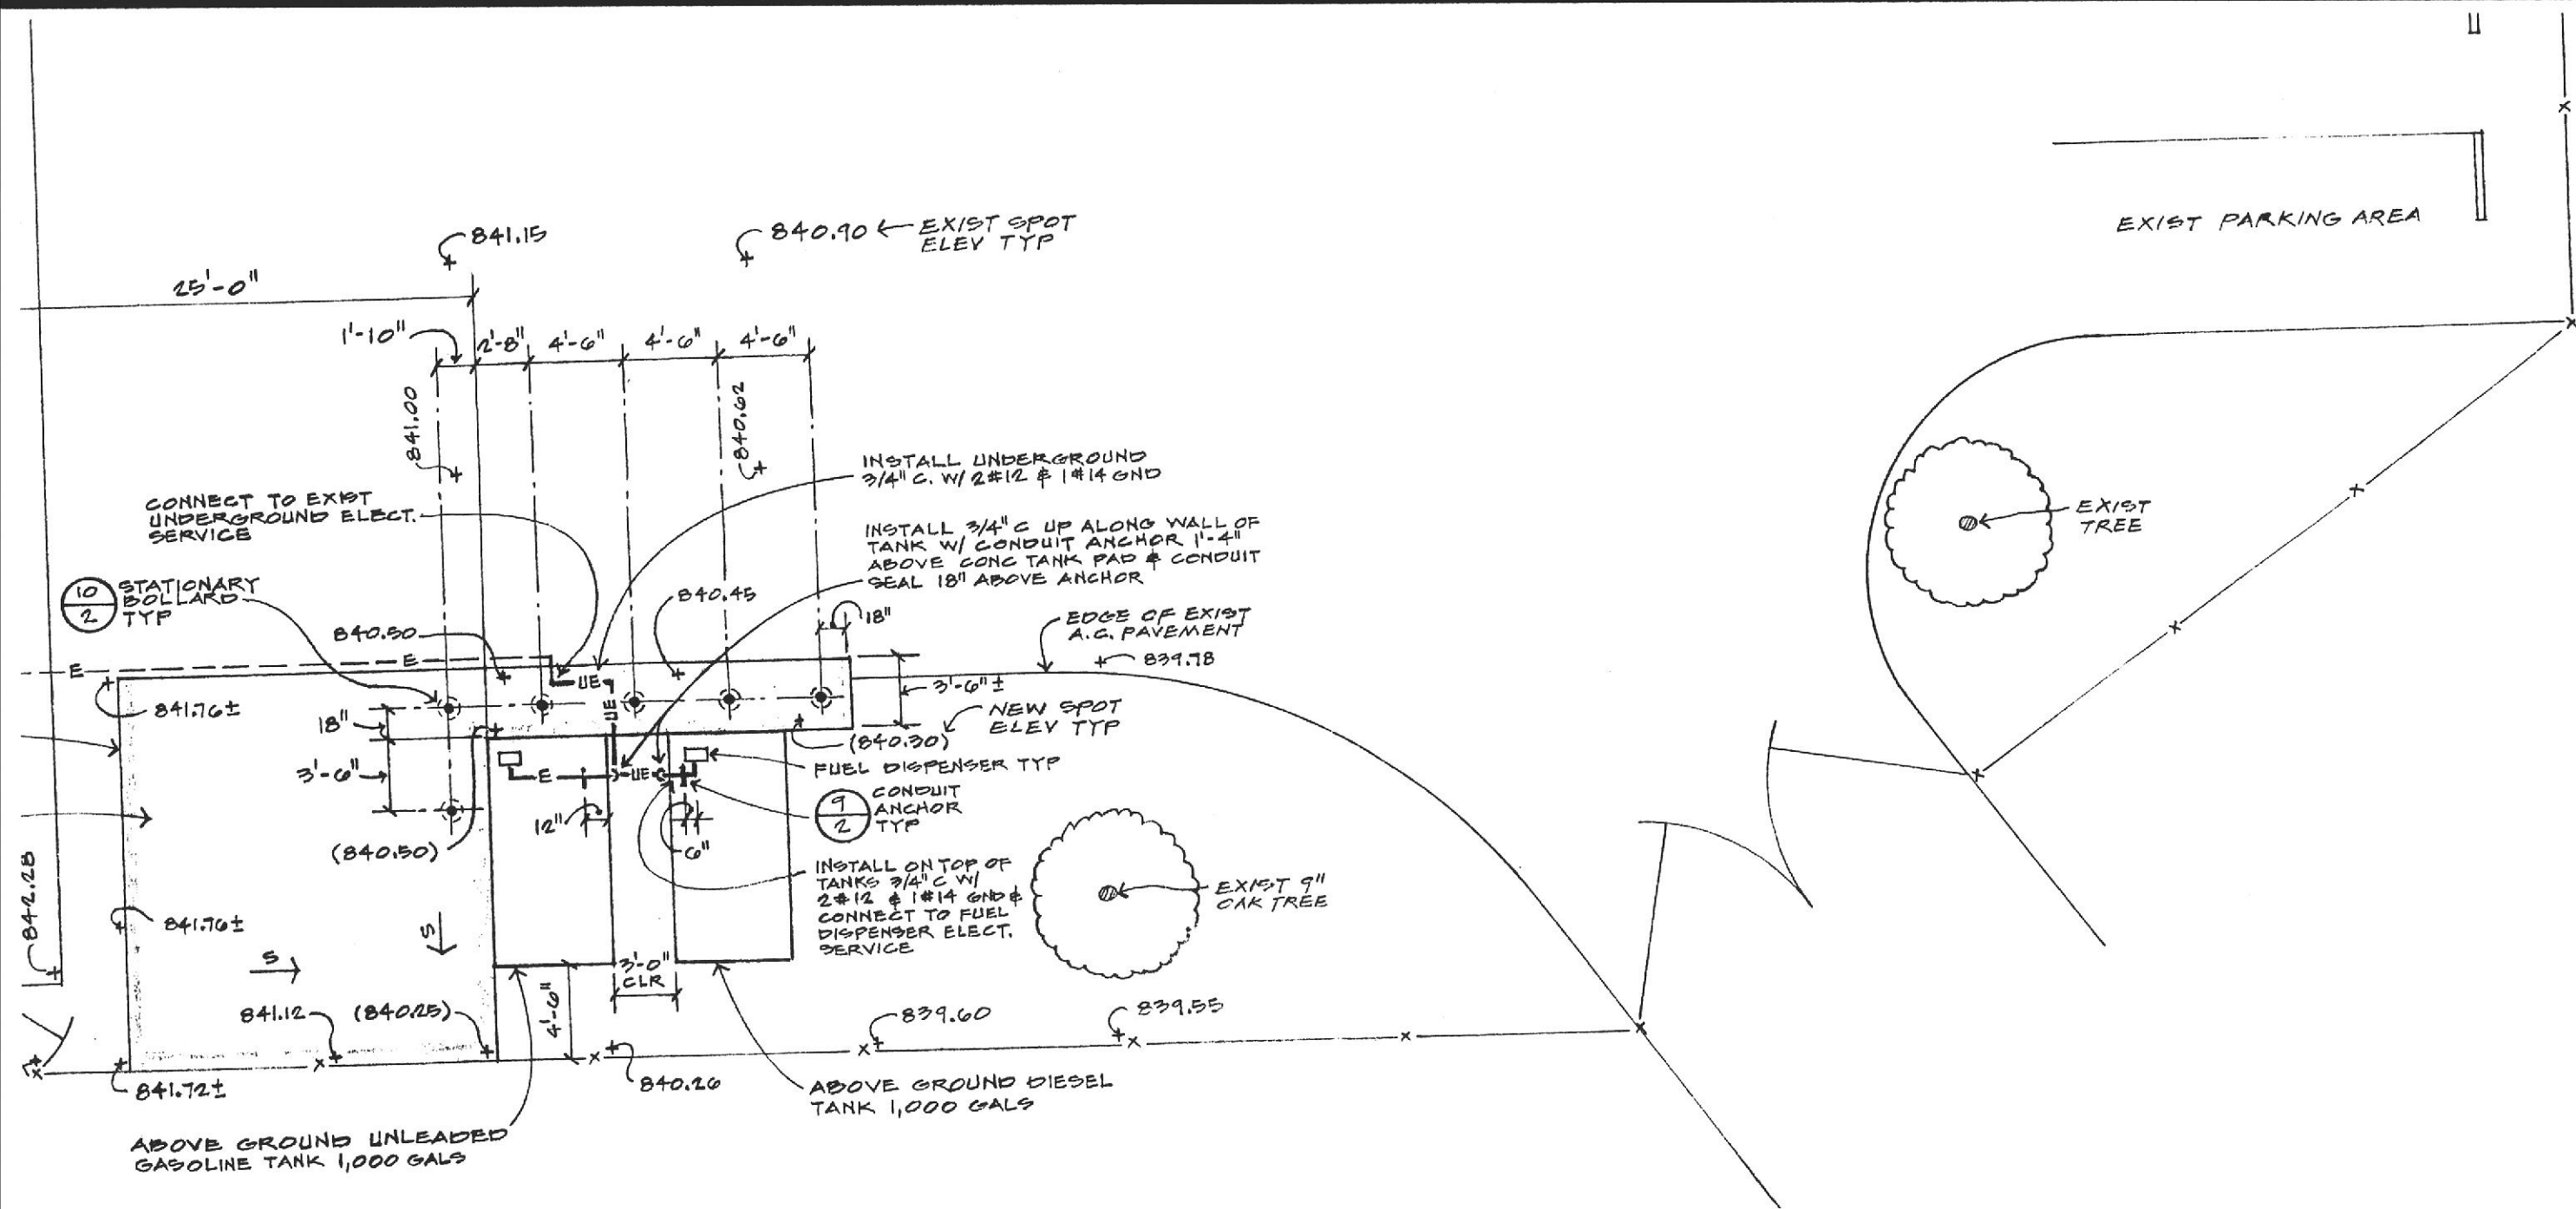 841.15
840.90
EXIST SPOT
ELEV TYP
EXIST PARKING AREA
25'-0"
1'-10"
2'-8"
4'-6"
4'-6"
4'-6"
841.00
840.62
INSTALL UNDERGROUND
3/4" C. W/ 2#12 & 1#14 GND
CONNECT TO EXIST
UNDERGROUND ELECT.
SERVICE
INSTALL 3/4" C UP ALONG WALL OF
TANK W/ CONDUIT ANCHOR 1'-4"
ABOVE CONC TANK PAD & CONDUIT
SEAL 18" ABOVE ANCHOR
EXIST
TREE
10
2
STATIONARY
BOLLARD
TYP
840.45
18"
840.50
EDGE OF EXIST
A.C. PAVEMENT
839.78
E
E
UE
UE
841.76±
3'-6"±
NEW SPOT
ELEV TYP
18"
(840.30)
3'-6"
E
UE
FUEL DISPENSER TYP
9
2
CONDUIT
ANCHOR
TYP
12"
6"
(840.50)
INSTALL ON TOP OF
TANKS 3/4" C W/
2#12 & 1#14 GND &
CONNECT TO FUEL
DISPENSER ELECT.
SERVICE
EXIST 9"
OAK TREE
842.28
841.76±
S
S
3'-0"
CLR
4'-6"
841.12
(840.25)
839.60
839.55
841.72±
840.26
ABOVE GROUND DIESEL
TANK 1,000 GALS
ABOVE GROUND UNLEADED
GASOLINE TANK 1,000 GALS